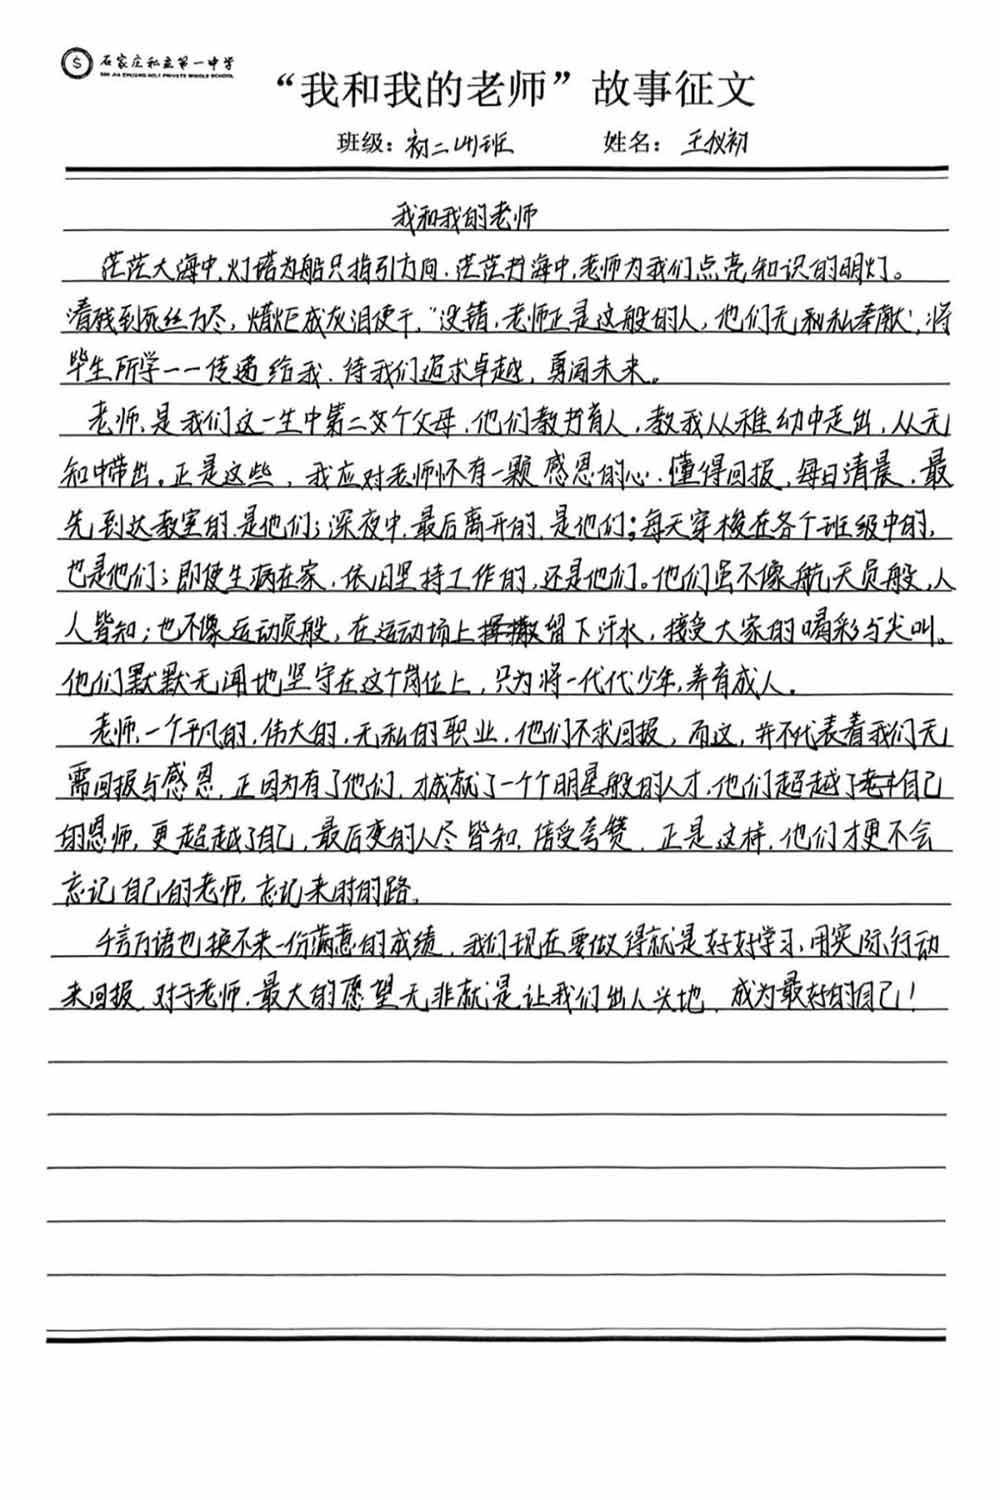 石家庄私立第一中学
SHI JIA ZHUANG NO.1 PRIVATE MIDDLE SCHOOL
“我和我的老师”故事征文
班级：初二 班 姓名：王仪初
我和我的老师
茫茫大海中，灯塔为船只指引方向，茫茫书海中，老师为我们点亮知识的明灯。
“春残到死丝方尽，蜡炬成灰泪使干，”没错，老师正是这般的人，他们无私奉献，将
毕生所学一一传递给我，待我们追求卓越，勇闯未来。
老师，是我们这一生中第二个父母，他们教书育人，教我从稚幼中走出，从无
知中带出。正是这些，我应对老师怀有一颗感恩的心，懂得回报，每日清晨，最
先到达教室的，是他们；深夜中，最后离开的，是他们；每天穿梭在各个班级中的，
也是他们；即使生病在家，依旧坚持工作的，还是他们。他们虽不像航天员般，人
人皆知；也不像运动员般，在运动场上留下汗水，接受大家的喝彩与尖叫。
他们默默无闻地坚守在这个岗位上，只为将一代代少年，养育成人。
老师，一个平凡的，伟大的，无私的职业，他们不求回报，而这，并不代表着我们无
需回报与感恩，正因为有了他们，才成就了一个个明星般的人才，他们超越了自己
的恩师，更超越了自己，最后变的人尽皆知，倍受夸赞，正是这样，他们才更不会
忘记自己的老师，忘记来时的路。
千言万语也换不来一份满意的成绩，我们现在要做得就是好好学习，用实际行动
来回报，对于老师，最大的愿望无非就是让我们出人头地，成为最好的自己！